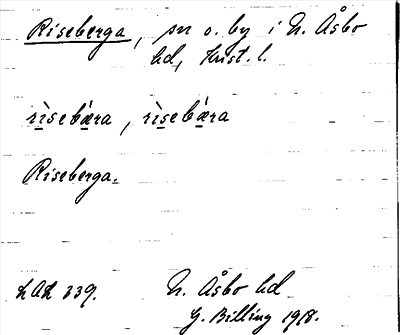 Riseberga, sn o. by i N. Åsbo
hd, Krist. l.
rìsebǽra, rìsebǽra
Riseberga.
LAL 339. N. Åsbo hd
G. Billing 1918.